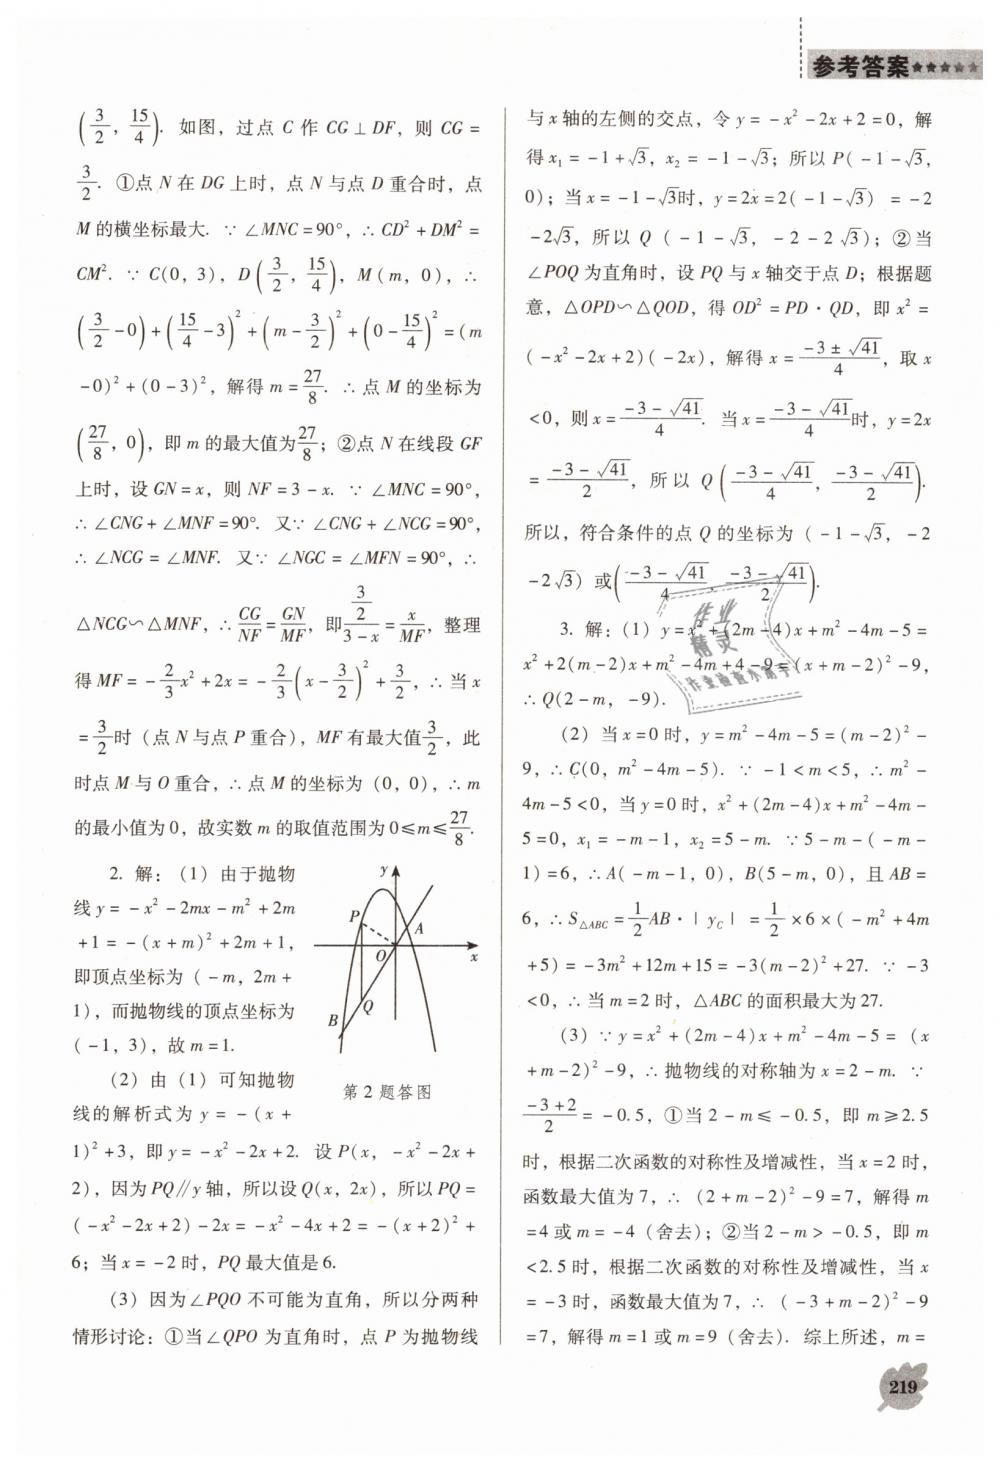 参考答案★★★★★
(3/2, 15/4). 如图，过点 C 作 CG⊥DF，则 CG =
3/2. ①点 N 在 DG 上时，点 N 与点 D 重合时，点
M 的横坐标最大. ∵ ∠MNC = 90°，∴ CD² + DM² =
CM². ∵ C(0, 3)，D(3/2, 15/4)，M(m, 0)，∴
(3/2 - 0) + (15/4 - 3)² + (m - 3/2)² + (0 - 15/4)² = (m
- 0)² + (0 - 3)²，解得 m = 27/8. ∴ 点 M 的坐标为
(27/8, 0)，即 m 的最大值为27/8；②点 N 在线段 GF
上时，设 GN = x，则 NF = 3 - x. ∵ ∠MNC = 90°，
∴ ∠CNG + ∠MNF = 90°. 又∵ ∠CNG + ∠NCG = 90°，
∴ ∠NCG = ∠MNF. 又∵ ∠NGC = ∠MFN = 90°，∴
△NCG∽△MNF，∴ CG/NF = GN/MF，即 (3/2)/(3 - x) = x/MF，整理
得 MF = -2/3x² + 2x = -2/3(x - 3/2)² + 3/2，∴ 当 x
= 3/2时（点 N 与点 P 重合），MF 有最大值3/2，此
时点 M 与 O 重合，∴ 点 M 的坐标为 (0, 0)，∴ m
的最小值为 0，故实数 m 的取值范围为 0≤m≤27/8.
2. 解：(1) 由于抛物
线 y = -x² - 2mx - m² + 2m
+ 1 = -(x + m)² + 2m + 1，
即顶点坐标为 (-m, 2m +
1)，而抛物线的顶点坐标为
(-1, 3)，故 m = 1.
(2) 由 (1) 可知抛物
线的解析式为 y = -(x +
y
P
A
O
x
Q
B
第 2 题答图
1)² + 3，即 y = -x² - 2x + 2. 设 P(x, -x² - 2x +
2)，因为 PQ∥y 轴，所以设 Q(x, 2x)，所以 PQ =
(-x² - 2x + 2) - 2x = -x² - 4x + 2 = -(x + 2)² +
6；当 x = -2 时，PQ 最大值是 6.
(3) 因为∠PQO 不可能为直角，所以分两种
情形讨论：①当∠QPO 为直角时，点 P 为抛物线
与 x 轴的左侧的交点，令 y = -x² - 2x + 2 = 0，解
得 x₁ = -1 + √3，x₂ = -1 - √3；所以 P(-1 - √3,
0)；当 x = -1 - √3时，y = 2x = 2(-1 - √3) = -2
- 2√3，所以 Q (-1 - √3, -2 - 2√3)；②当
∠POQ 为直角时，设 PQ 与 x 轴交于点 D；根据题
意，△OPD∽△QOD，得 OD² = PD · QD，即 x² =
(-x² - 2x + 2)(-2x)，解得 x = (-3 ± √41)/4，取 x
<0，则 x = (-3 - √41)/4. 当 x = (-3 - √41)/4时，y = 2x
= (-3 - √41)/2，所以 Q((-3 - √41)/4, (-3 - √41)/2).
所以，符合条件的点 Q 的坐标为 (-1 - √3, -2
- 2√3) 或((-3 - √41)/4, (-3 - √41)/2).
3. 解：(1) y = x² + (2m - 4)x + m² - 4m - 5 =
x² + 2(m - 2)x + m² - 4m + 4 - 9 = (x + m - 2)² - 9，
∴ Q(2 - m, -9).
(2) 当 x = 0 时，y = m² - 4m - 5 = (m - 2)² -
9，∴ C(0, m² - 4m - 5). ∵ -1 < m < 5，∴ m² -
4m - 5 < 0，当 y = 0 时，x² + (2m - 4)x + m² - 4m -
5 = 0，x₁ = -m - 1，x₂ = 5 - m. ∵ 5 - m - (-m -
1) = 6，∴ A(-m - 1, 0)，B(5 - m, 0)，且 AB =
6，∴ S△ABC = 1/2AB · |yC| = 1/2 × 6 × (-m² + 4m
+ 5) = -3m² + 12m + 15 = -3(m - 2)² + 27. ∵ -3
<0，∴ 当 m = 2 时，△ABC 的面积最大为 27.
(3) ∵ y = x² + (2m - 4)x + m² - 4m - 5 = (x
+ m - 2)² - 9，∴ 抛物线的对称轴为 x = 2 - m. ∵
(-3 + 2)/2 = -0.5，①当 2 - m ≤ -0.5，即 m ≥ 2.5
时，根据二次函数的对称性及增减性，当 x = 2 时，
函数最大值为 7，∴ (2 + m - 2)² - 9 = 7，解得 m
= 4 或 m = -4（舍去）；②当 2 - m > -0.5，即 m
< 2.5 时，根据二次函数的对称性及增减性，当 x
= -3 时，函数最大值为 7，∴ (-3 + m - 2)² - 9
= 7，解得 m = 1 或 m = 9（舍去）. 综上所述，m =
作业
精灵
219